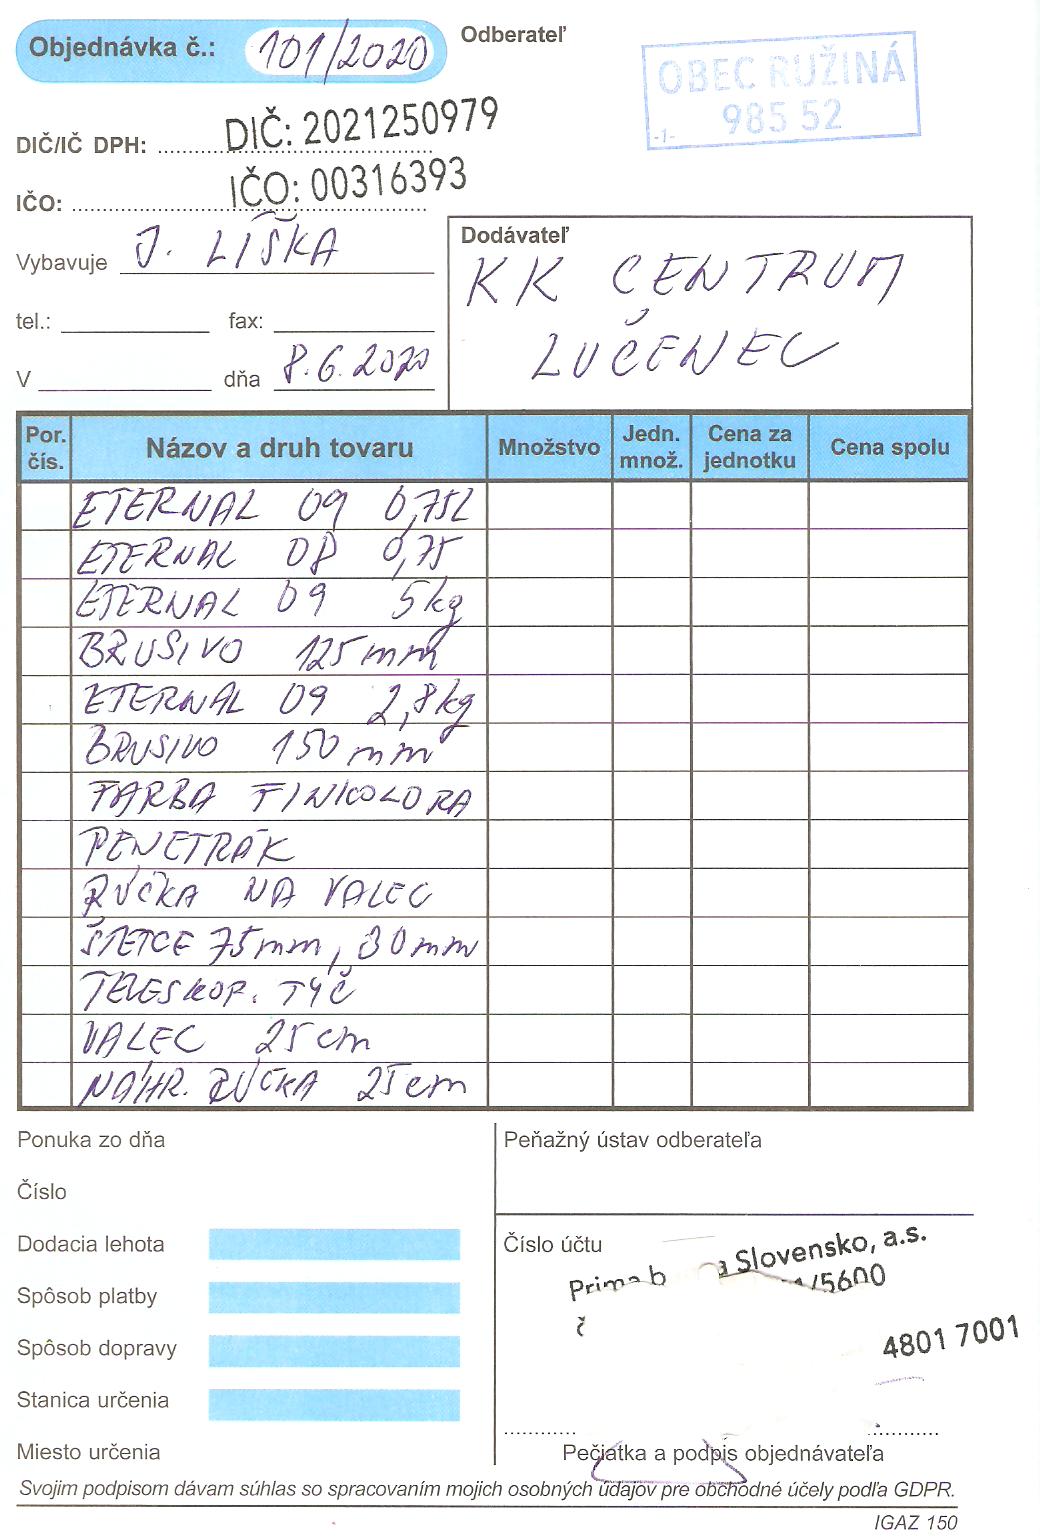 Objednávka č.: 101/2020
Odberateľ
OBEC RUŽINÁ
985 52
-1-
DIČ/IČ DPH: DIČ: 2021250979
IČO: IČO: 00316393
Vybavuje J. LIŠKA
tel.: fax:
V dňa 8.6.2020
Dodávateľ
KK CENTRUM
LUČENEC
Por. čís. Názov a druh tovaru Množstvo Jedn. množ. Cena za jednotku Cena spolu
ETERNAL 09 0,75L
ETERNAL 08 0,75
ETERNAL 09 5kg
BRUSIVO 125mm
ETERNAL 09 2,8kg
BRUSIVO 150mm
FARBA FINKOLORA
PENETRÁK
RÚČKA NA VALEC
ŠTETCE 75mm, 30mm
TELESKOP. TYČ
VALEC 25cm
NÁHR. RÚČKA 25cm
Ponuka zo dňa
Číslo
Dodacia lehota
Spôsob platby
Spôsob dopravy
Stanica určenia
Miesto určenia
Peňažný ústav odberateľa
Číslo účtu
Prima b a Slovensko, a.s.
/5600
č
4801 7001
Pečiatka a podpis objednávateľa
Svojim podpisom dávam súhlas so spracovaním mojich osobných údajov pre obchodné účely podľa GDPR.
IGAZ 150